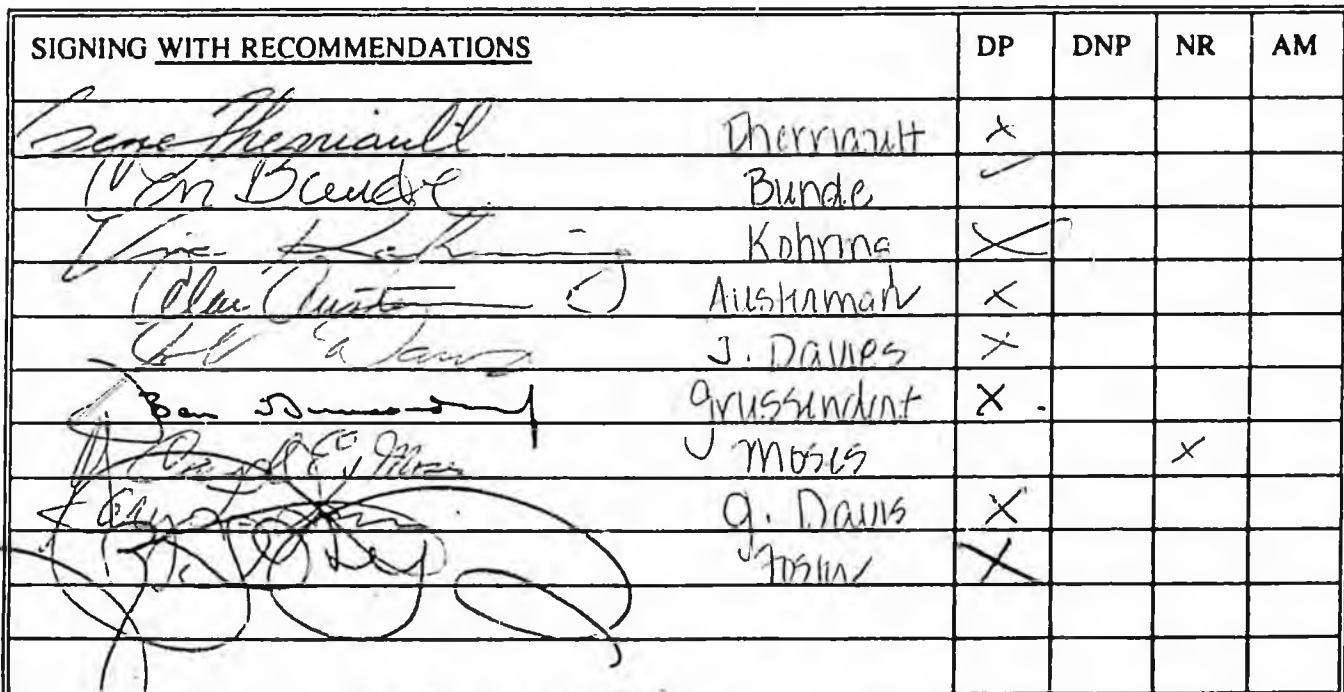 SIGNING WITH RECOMMENDATIONS DP DNP NR AM
Gene Therriault Therriault X
Con Bunde Bunde ✓
Vic Kohring Kohring X
Alan Austerman Austerman X
J. Davies X
Ben Grussendorf Grussendorf X
Moses Moses X
G. Davis X
Foster X